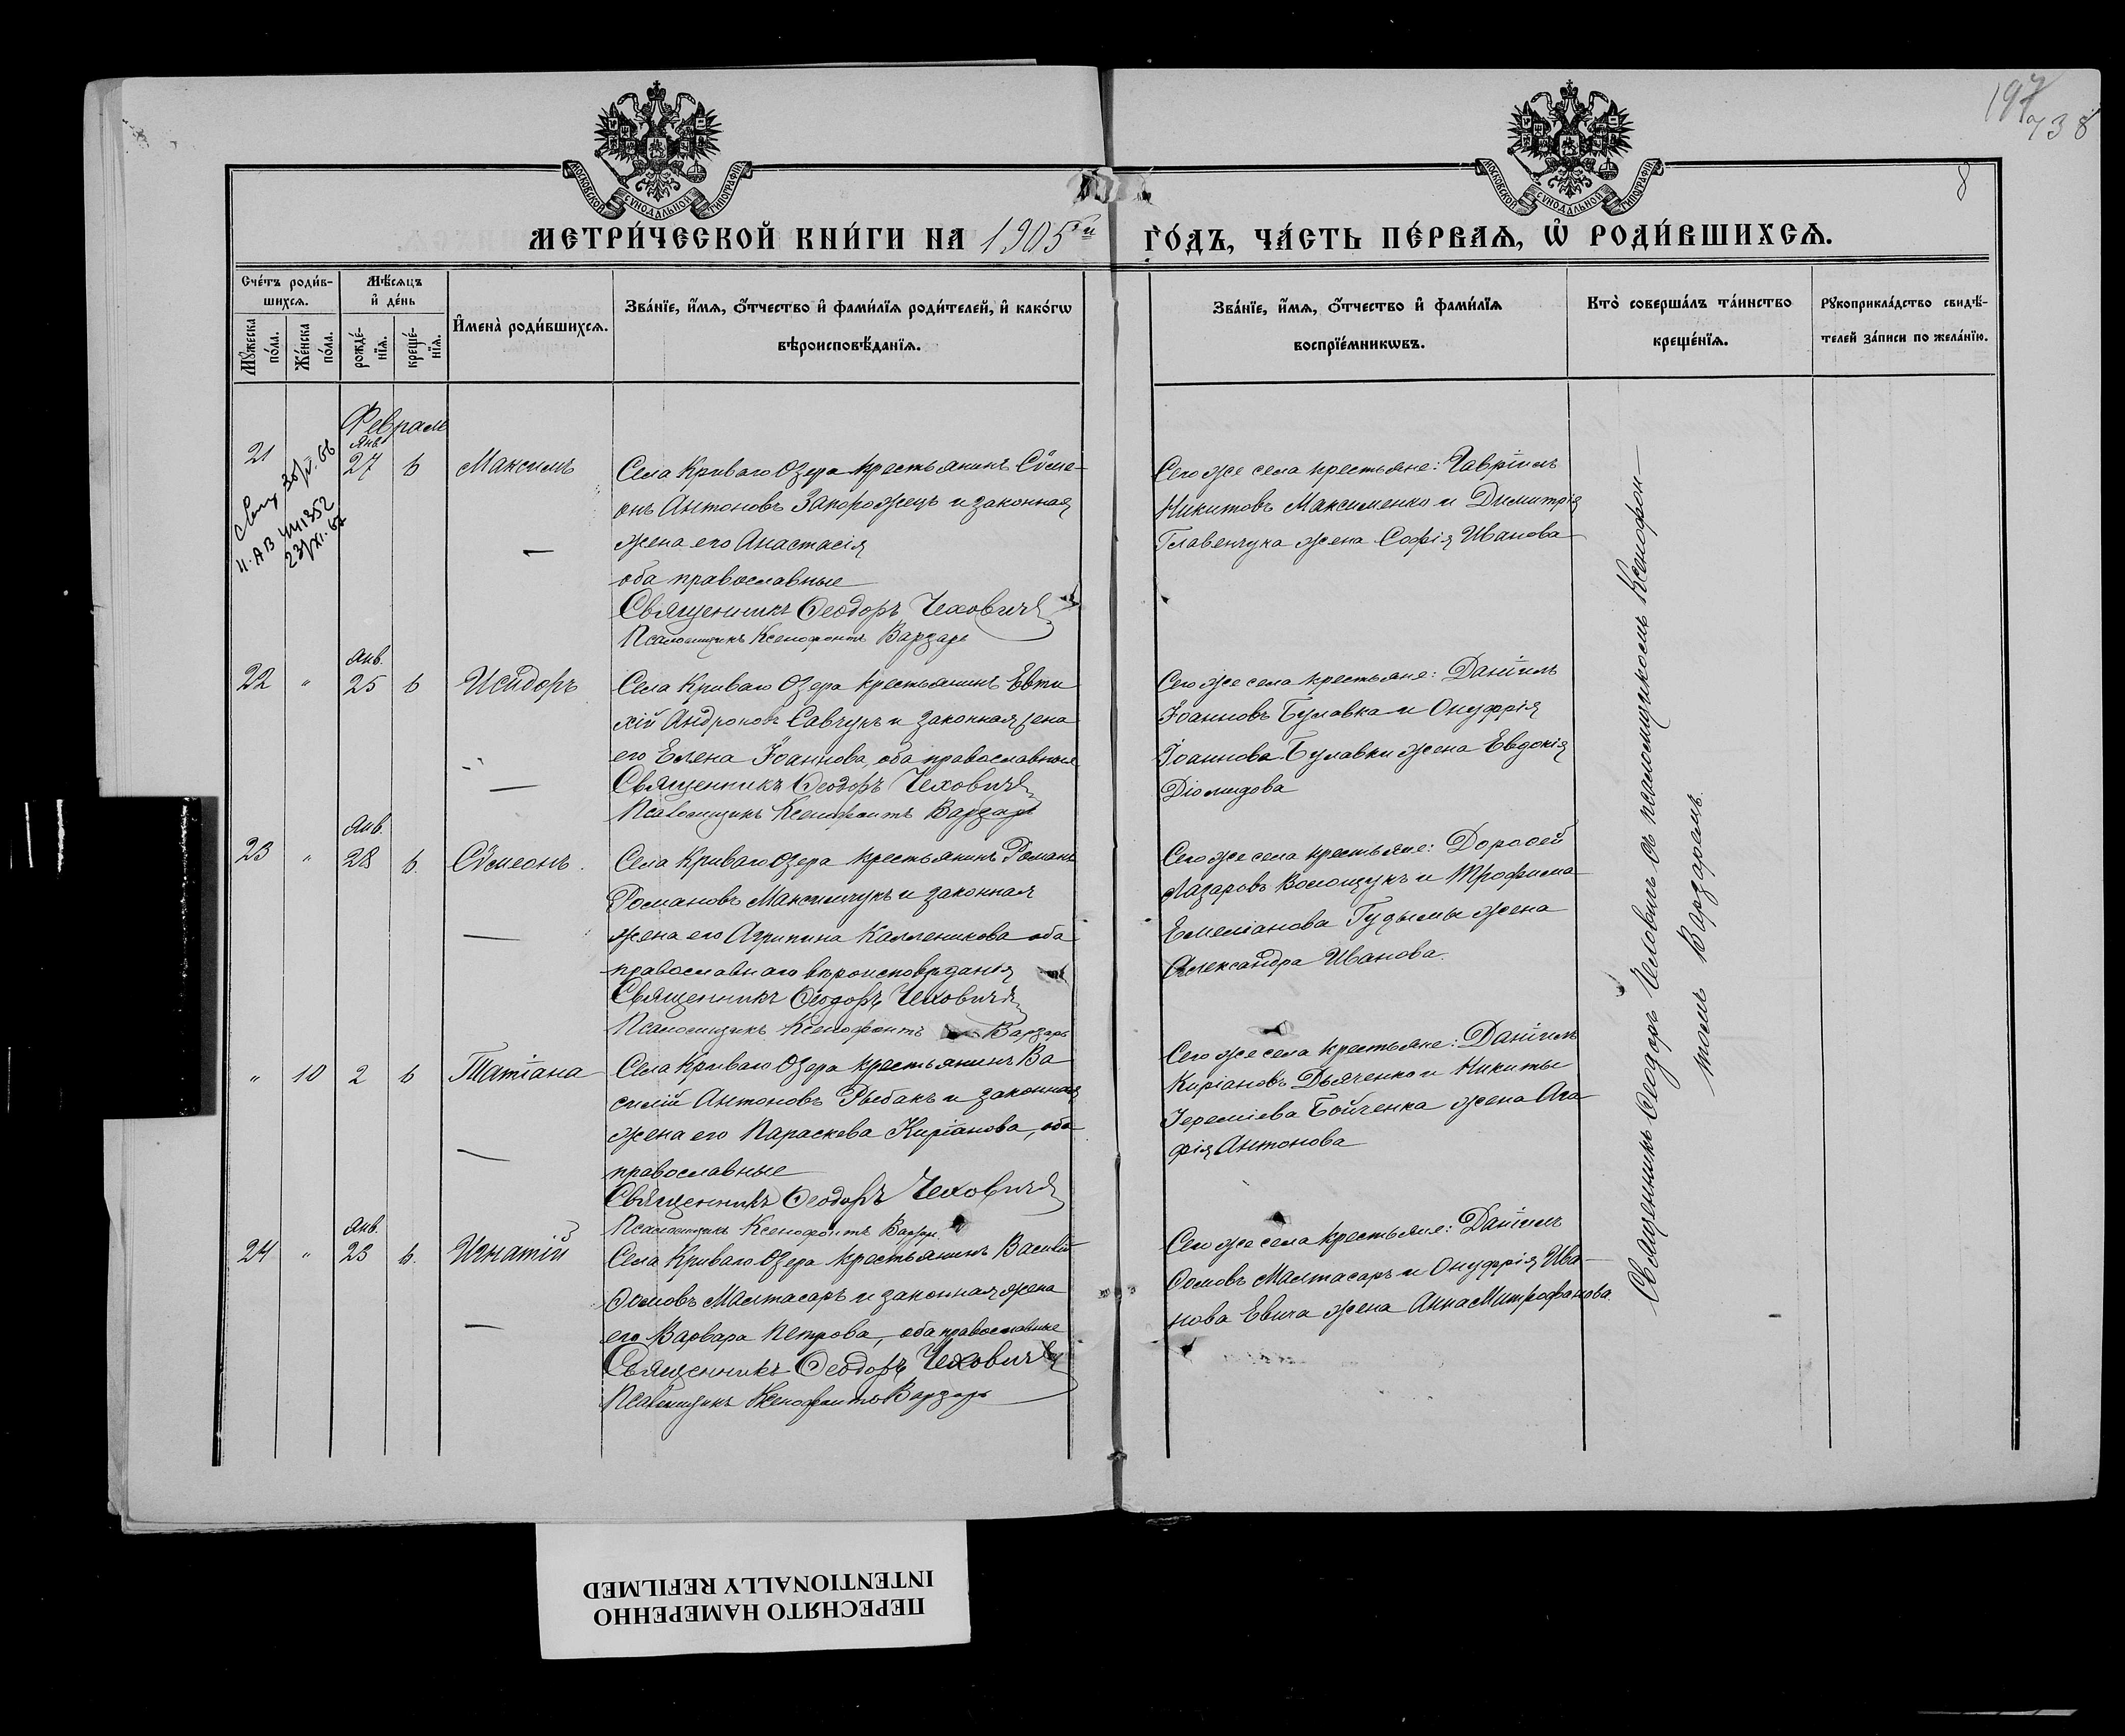 197
738
8
МОСКОВСКОЙ СУНОДАЛЬНОЙ ТИПОГРАФИИ
МОСКОВСКОЙ СУНОДАЛЬНОЙ ТИПОГРАФИИ
МЕТРИ́ЧЕСКОЙ КНИ́ГИ НА 1905ый ГО́ДЪ, ЧА́СТЬ ПЕ́РВАѦ, Ѡ҆ РОДИ́ВШИХСѦ.
Сче́тъ роди́в-
шихсѧ.
Мꙋ́жеска по́ла.
Же́нска по́ла.
Мѣ́сѧцъ
и҆ де́нь
рожде́-
нїѧ.
креще́-
нїѧ.
И҆мена̀ роди́вшихсѧ.
Зва́нїе, и҆́мѧ, ѻ҆́тчество и҆ фами́лїѧ роди́телей, и҆ како́гѡ
вѣроисповѣ́данїѧ.
Зва́нїе, и҆́мѧ, ѻ҆́тчество и҆ фами́лїѧ
воспрїе́мникѡвъ.
Кто̀ соверша́лъ та́инство
креще́нїѧ.
Рꙋкоприкла́дство свидѣ́-
телей за́писи по жела́нїю.
Февраль
21 Янв. 27 6 Максимъ
Села Криваго Озера крестьянинъ Сѵме-
онъ Антоновъ Запорожецъ и законная
жена его Анастасія
оба православные
Священникъ Ѳеодоръ Чеховичъ
Псаломщикъ Ксенофонтъ Варзарь
Сего же села крестьяне: Гавріилъ
Никитовъ Максименко и Димитрія
Главенчука жена Софія Иванова
II. АВ 441352
23/XI. 67
22 " Янв. 25 6 Исидоръ
Села Криваго Озера крестьянинъ Евти
хій Андроновъ Савчукъ и законная жена
его Елена Іоаннова, оба православные
Священникъ Ѳеодоръ Чеховичъ
Псаломщикъ Ксенофонтъ Варзарь
Сего же села крестьяне: Даніилъ
Іоанновъ Булавка и Онуфрія
Іоаннова Булавки жена Евдокія
Діомидова
23 " Янв. 28 6. Сѵмеонъ.
Села Криваго Озера крестьянинъ Романъ
Романовъ Максимчукъ и законная
жена его Агрипина Каллиникова оба
православнаго вѣроисповѣданія
Священникъ Ѳеодоръ Чеховичъ
Псаломщикъ Ксенофонтъ Варзарь
Сего же села крестьяне: Дороѳей
Лазаровъ Волощукъ и Трофима
Емеліанова Гудымы жена
Александра Иванова.
" 10 2 6 Татіана
Села Криваго Озера крестьянинъ Ва
силій Антоновъ Рыбакъ и законная
жена его Параскева Киріанова, оба
православные
Священникъ Ѳеодоръ Чеховичъ
Псаломщикъ Ксенофонтъ Варзарь
Сего же села крестьяне: Даніилъ
Киріановъ Дьяченко и Никиты
Іереміева Бойченка жена Ага
фія Антонова
24 " Янв. 23 6. Игнатій
Села Криваго Озера крестьянинъ Василій
Ѳомовъ Малтасаръ и законная жена
его Варвара Петрова, оба православные
Священникъ Ѳеодоръ Чеховичъ
Псаломщикъ Ксенофонтъ Варзарь
Сего же села крестьяне: Даніилъ
Ѳомовъ Малтасаръ и Онуфрія Ива-
нова Евича жена Анна Митрофанова
Священникъ Ѳеодоръ Чеховичъ съ псаломщикомъ Ксенофон-
томъ Варзаремъ.
ПЕРЕСНЯТО НАМЕРЕННО
INTENTIONALLY REFILMED